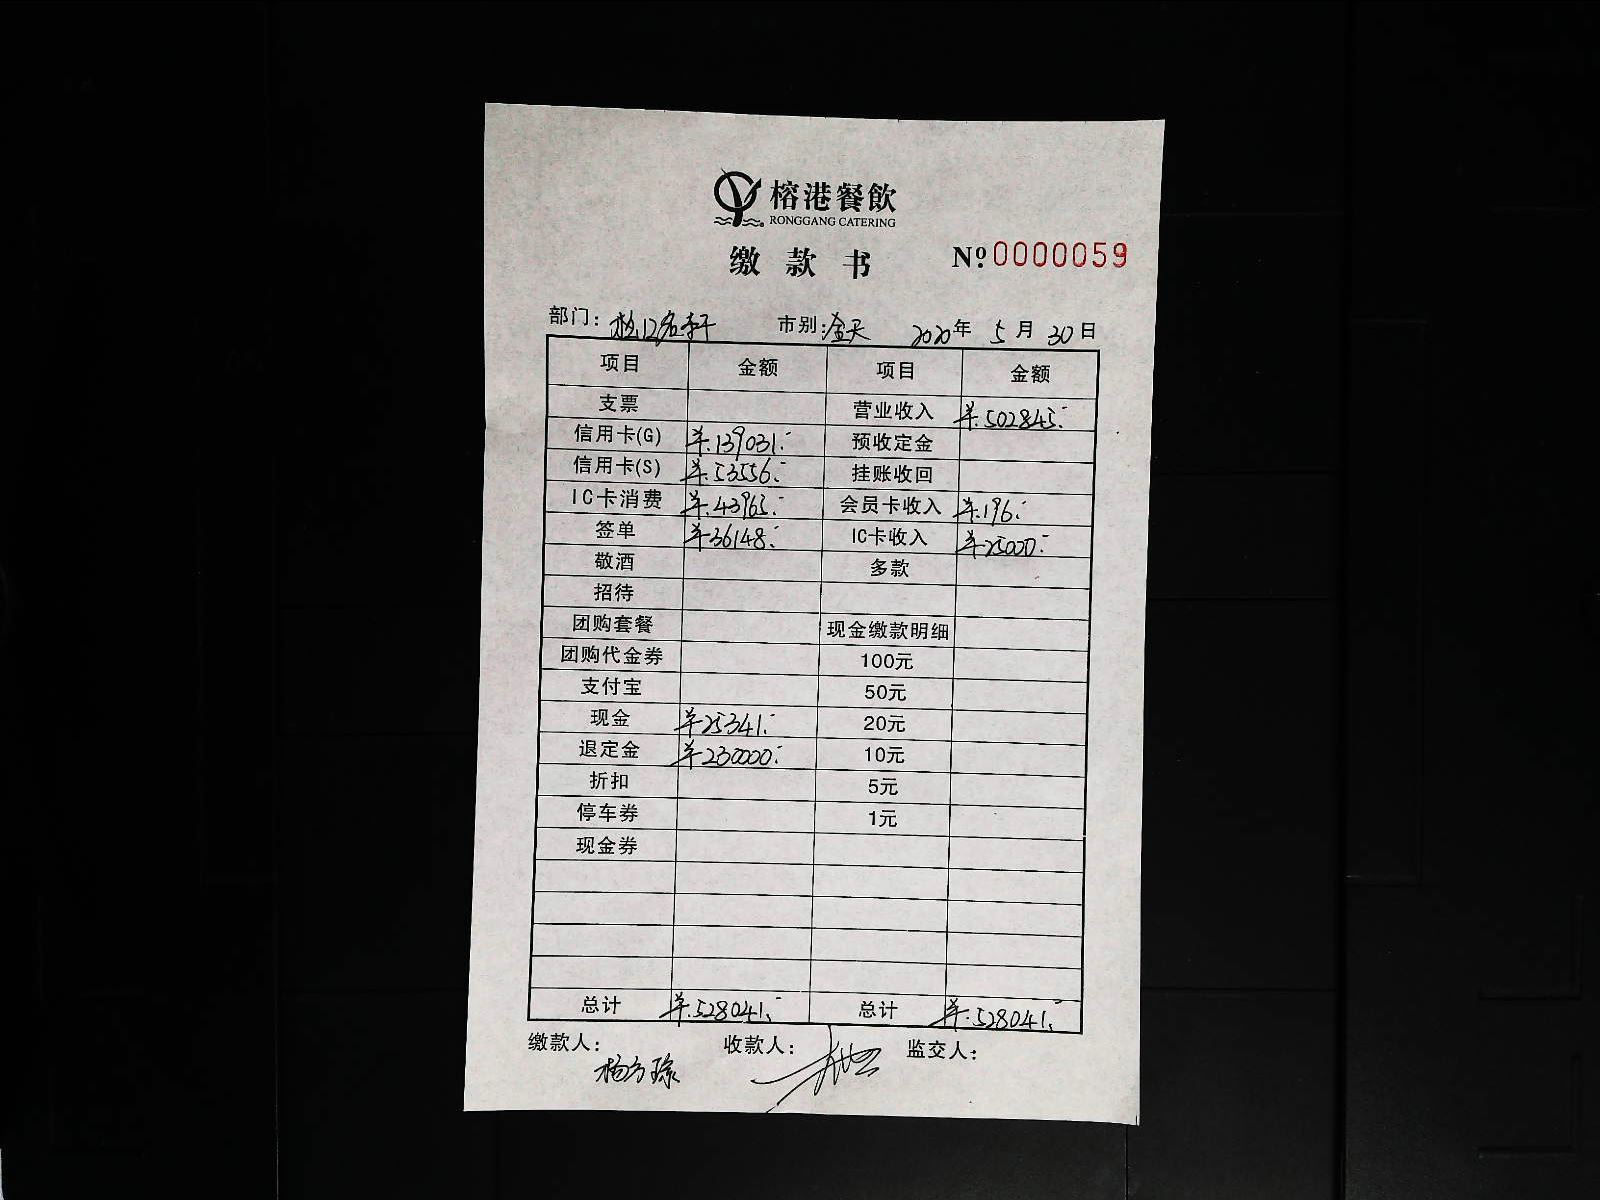 榕港餐飲
RONGGANG CATERING
缴款书 Nº 0000059
部门: 市别:全天 2020年 5月 30日
项目 金额 项目 金额
支票 营业收入 ¥.502845.-
信用卡(G) ¥.139031.- 预收定金
信用卡(S) ¥.53556.- 挂账收回
IC卡消费 ¥.43965.- 会员卡收入 ¥.196.-
签单 ¥36148.- IC卡收入 ¥25000.-
敬酒 多款
招待
团购套餐 现金缴款明细
团购代金券 100元
支付宝 50元
现金 ¥25341.- 20元
退定金 ¥230000.- 10元
折扣 5元
停车券 1元
现金券
总计 ¥.528041.- 总计 ¥.528041.-
缴款人: 收款人: 监交人: